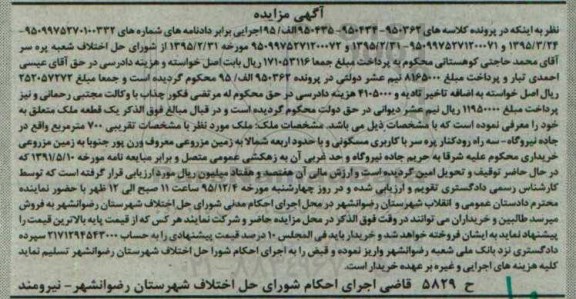 آگهی مزایده
نظر به اینکه در پرونده کلاسه های ۹۵۰۳۶۲-۹۵۰۴۳۴-۹۵۰۴۳۵الف/۹۵ اجرایی برابر دادنامه های شماره های ۹۵۰۹۹۷۵۲۷۰۱۰۰۳۳۲-
۱۳۹۵/۳/۲۴ و ۹۵۰۹۹۷۵۲۷۱۲۰۰۰۷۱-۱۳۹۵/۲/۳۱ و ۹۵۰۹۹۷۵۲۷۱۲۰۰۰۷۲ مورخه ۱۳۹۵/۲/۳۱ از شورای حل اختلاف شعبه پره سر
آقای محمد حاجتی کوهستانی محکوم به پرداخت مبلغ جمعا ۱۷۱۰۵۳۱۱۶ ریال بابت اصل خواسته و هزینه دادرسی در حق آقای عیسی
احمدی تبار و پرداخت مبلغ ۸۱۶۵۰۰۰ نیم عشر دولتی در پرونده ۹۵۰۳۶۲ الف/۹۵ محکوم گردیده است و جمعا مبلغ ۲۵۲۰۵۷۲۷۲
ریال اصل خواسته به اضافه تاخیر تادیه و ۴۱۰۵۰۰۰ هزینه دادرسی در حق محکوم له مرتضی فکور چذاب با وکالت مجتبی رحمانی و نیز
پرداخت مبلغ ۱۱۹۵۰۰۰۰ ریال نیم عشر دیوانی در حق دولت محکوم گردیده است و در قبال مبالغ فوق الذکر یک قطعه ملک متعلق به
خود را معرفی نموده است که با مشخصات ذیل می باشد. مشخصات ملک: ملک مورد نظر با مشخصات تقریبی ۷۰۰ مترمربع واقع در
جاده نیروگاه - سه راه رودکنار پره سر با کاربری مسکونی و با حدود اربعه شمالا به زمین مزروعی معروف ورن پور جنوبا به زمین مزروعی
خریداری محکوم علیه شرقا به حریم جاده نیروگاه و حد غربی آن به زهکشی عمومی متصل و برابر مبایعه نامه مورخه ۱۳۹۱/۵/۱۰ که
در حال حاضر توقیف و تحویل امین گردیده است و ارزش مالی آن هفتصد و هفتاد میلیون ریال مورد ارزیابی قرار گرفته است که توسط
کارشناس رسمی دادگستری تقویم و ارزیابی شده و در روز چهارشنبه مورخه ۹۵/۱۲/۴ ساعت ۱۱ صبح الی ۱۲ ظهر با حضور نماینده
محترم دادستان عمومی و انقلاب شهرستان رضوانشهر در محل اجرای احکام مدنی شورای حل اختلاف شهرستان رضوانشهر به فروش
میرسد طالبین و خریداران می توانند در وقت فوق الذکر در محل مزایده حاضر و شرکت نمایند هر کس که از قیمت پایه بالاترین قیمت را
پیشنهاد نماید به ایشان فروخته خواهد شد و خریدار باید فی المجلس ۱۰ درصد قیمت پیشنهادی را به حساب ۲۱۷۱۲۹۴۵۴۳۰۰۰ سپرده
دادگستری نزد بانک ملی شعبه رضوانشهر واریز نموده و قبض را به اجرای احکام شورا حل اختلاف شهرستان رضوانشهر تسلیم نماید
کلیه هزینه های اجرایی و غیره بر عهده خریدار است.
ح ۵۸۲۹ قاضی اجرای احکام شورای حل اختلاف شهرستان رضوانشهر- نیرومند